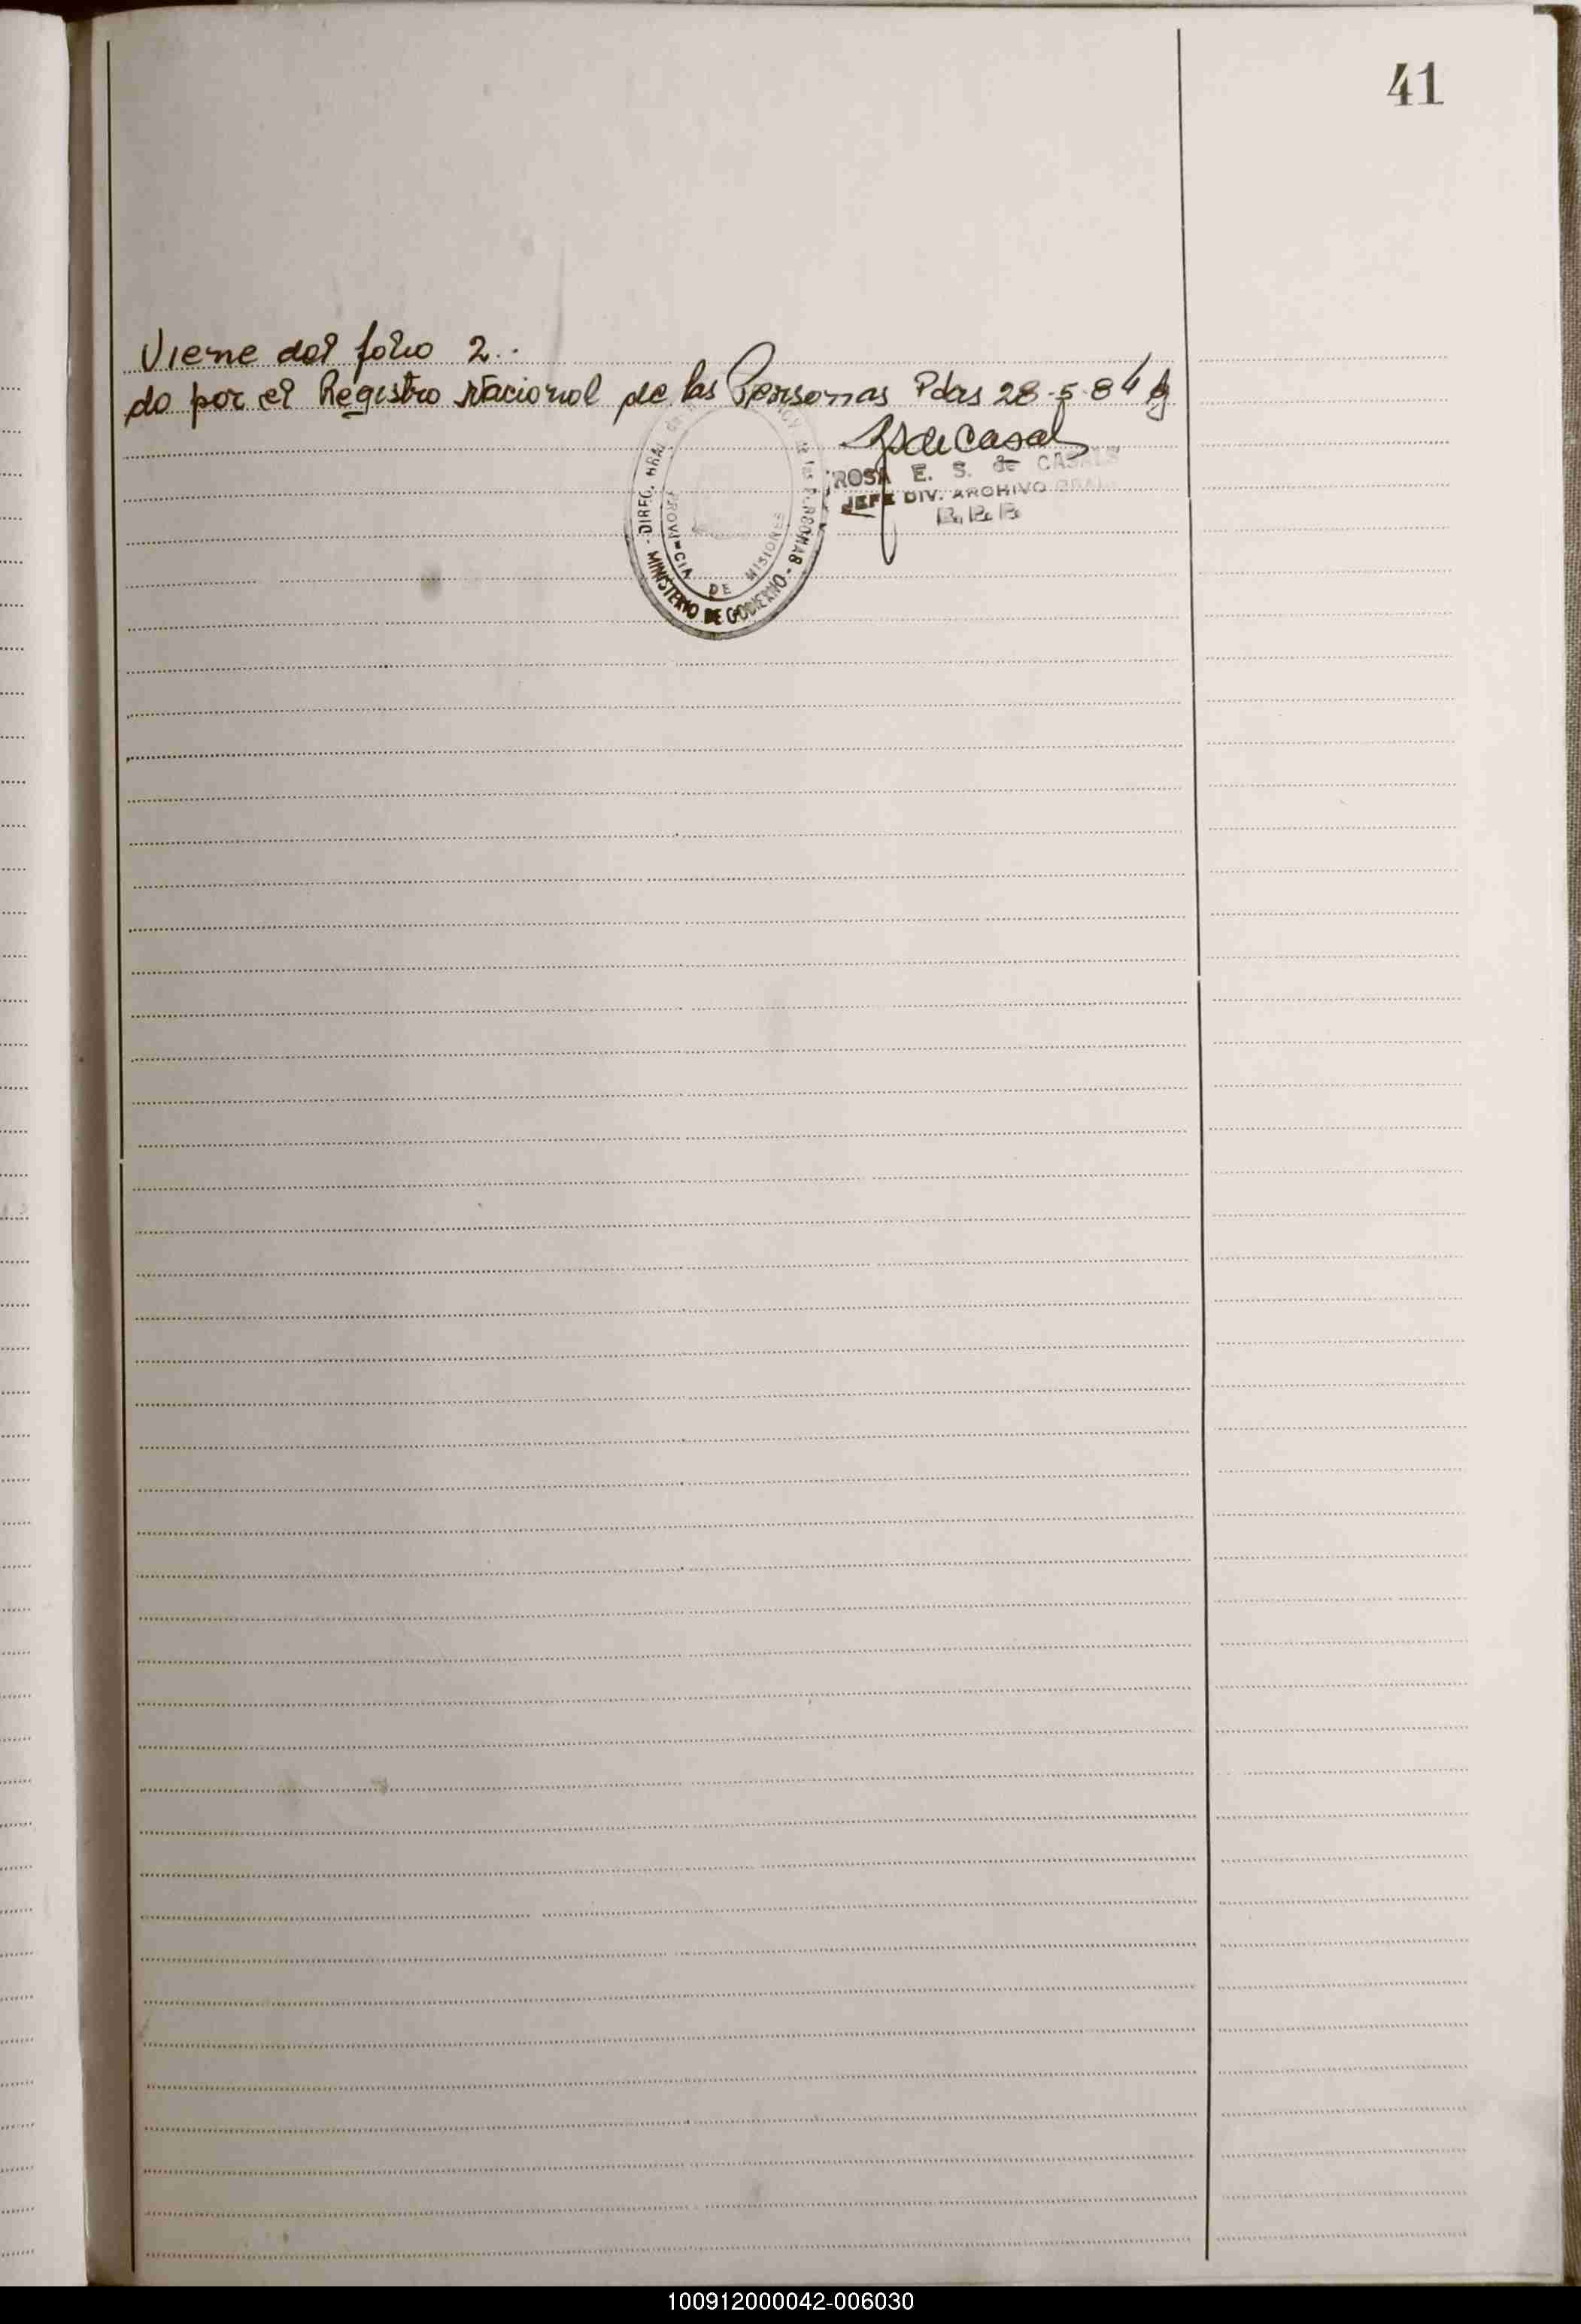 41
Viene del folio 2..
do por el Registro Nacional de las Personas Pdas 28-5-84
ROSA E. S. de CASALS
JEFE DIV. ARCHIVO GRAL.
DIREC. GRAL. de las PERSONAS -
MINISTERIO DE GOBIERNO -
PROVINCIA DE MISIONES
100912000042-006030